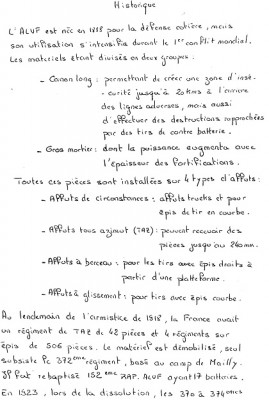 Historique
L'ALVF est née en 1818 pour la défense cotière, mais
son utilisation s'intensifia durant le 1er conflit mondial.
Les materiels étant divisés en deux groupes :
- Canon long : permettant de créer une zone d'insé-
curité jusqu'à 20kms à l'arriere
des lignes adverses, mais aussi
d'effectuer des destructions rapprochées
par des tirs de contre batterie.
- Gros mortier : dont la puissance augmenta avec
l'épaisseur des fortifications.
Toutes ces pièces sont installées sur 4 types d'affuts :
- Affuts de circonstances : affuts trucks et pour
épis de tir en courbe.
- Affuts tous azimut (TAZ) : peuvent recevoir des
pièces jusqu'au 240mm.
- Affuts à berceau : pour les tirs avec épis droits à
partir d'une plateforme.
- Affuts à glissement : pour tirs avec épis courbe.
Au lendemain de l'armistice de 1918, la France avait
un régiment de TAZ de 42 pièces et 4 régiments sur
épis de 506 pièces. Le matériel est démobilisé, seul
subsiste le 372eme régiment, basé au camp de Mailly.
Il fut rebaptisé 152eme RAP. ALVF ayant 17 batteries.
En 1923, lors de la dissolution, les 370 à 374emes